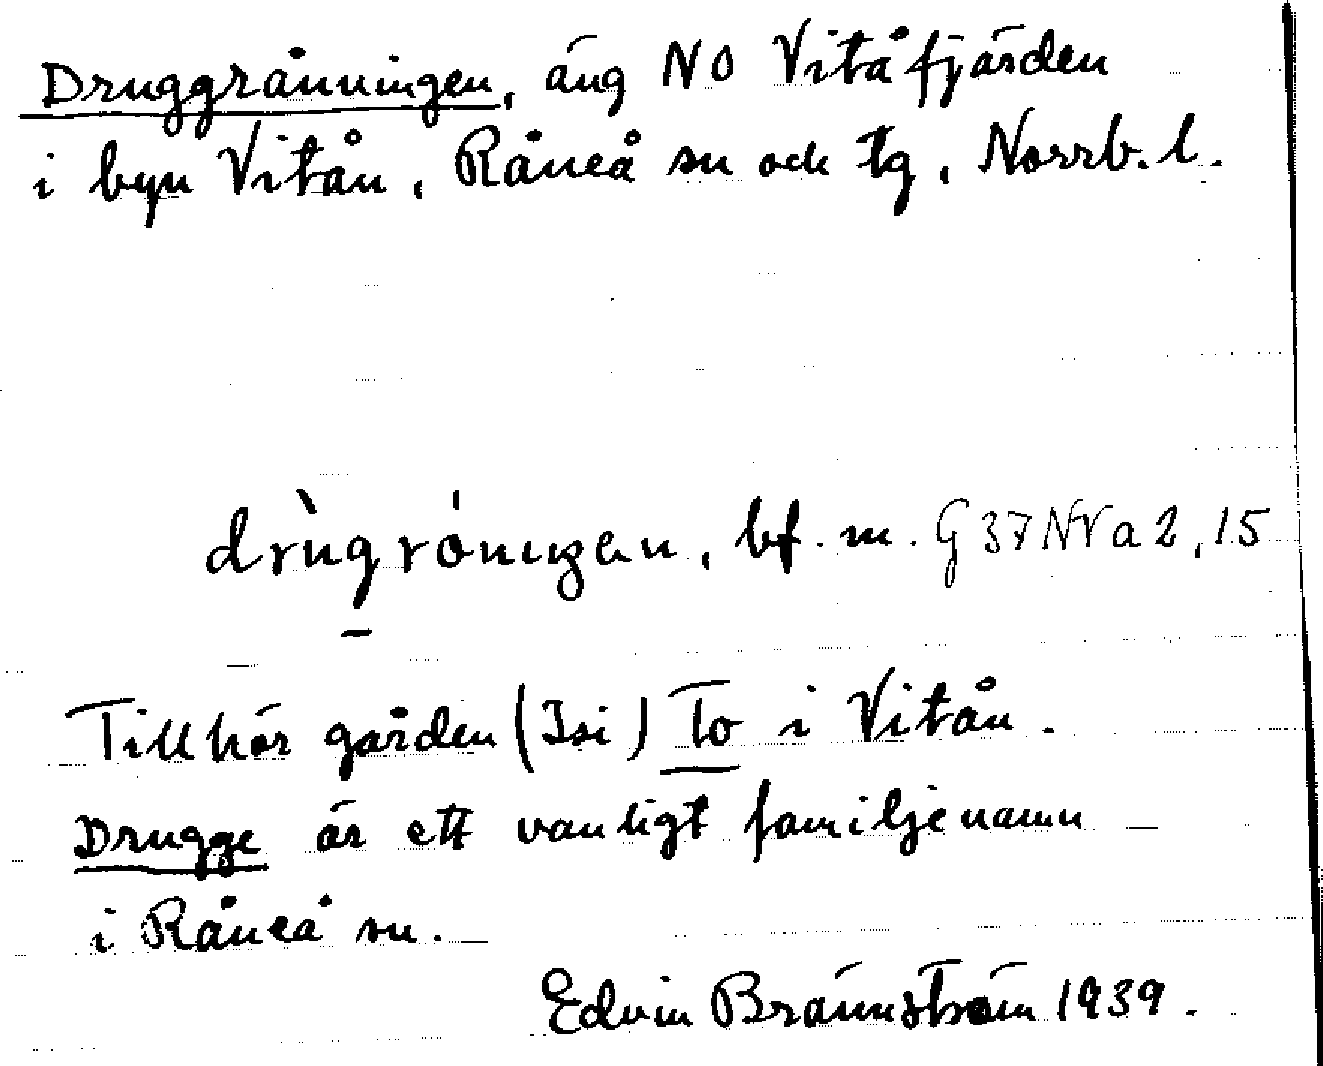 Druggrånningen, äng NO Vitåfjärden
i byn Vitån, Råneå sn och tg, Norrb. l.
drùgróniŋen, bf. m. G 37 NV a 2, 15
Tillhör gården (Isi) To i Vitån.
Drugge är ett vanligt familjenamn
i Råneå sn.
Edvin Brännström 1939.